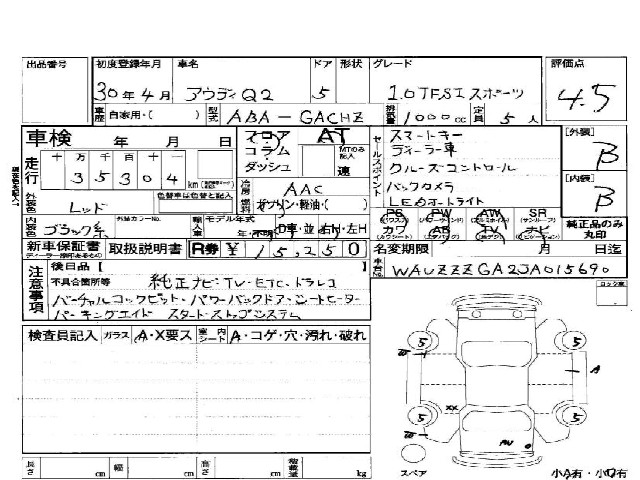 出品番号 初度登録年月 車名 ドア 形状 グレード 評価点
30年4月 アウディQ2 5 1.0TFSIスポーツ 4.5
車歴 自家用・( ) 型式 ABA-GACHZ 排気量 1000cc 定員 5人
車検 年 月 日 フロア AT スマートキー [外装]
走行 十 万 千 百 十 一 コラム MTのみ記入 ディーラー車 B
3 5 3 0 4 km ダッシュ 速 セールスポイント クルーズコントロール [内装]
外装色 レッド 色替車は色替と記入 冷房 AAC バックカメラ B
燃料 ガソリン・軽油・( ) LEDオートライト
内装色 ブラック系 外装カラーNo. 輸入車 モデル年式 年・不明 D車・並 右H・左H
PS PW AW SR
カワ AB TV ナビ 純正品のみ丸印
新車保証書 取扱説明書 R券 ¥ 15,250 名変期限 月 日迄
注意事項 後日品【 車台No. WAUZZZGA2JA015690
不具合箇所等 純正ナビ・TV・ETC・ドラレコ
バーチャルコックピット・パワーバックドア・シートヒーター
パーキングエイド スタートストップシステム
検査員記入 ガラス A・X要ス 室内シート A・コゲ・穴・汚れ・破れ
5 5
W
A
XX
5 5
W
AU
スペア 小A有・小U有
長さ cm 幅 cm 高さ cm 積載量 kg